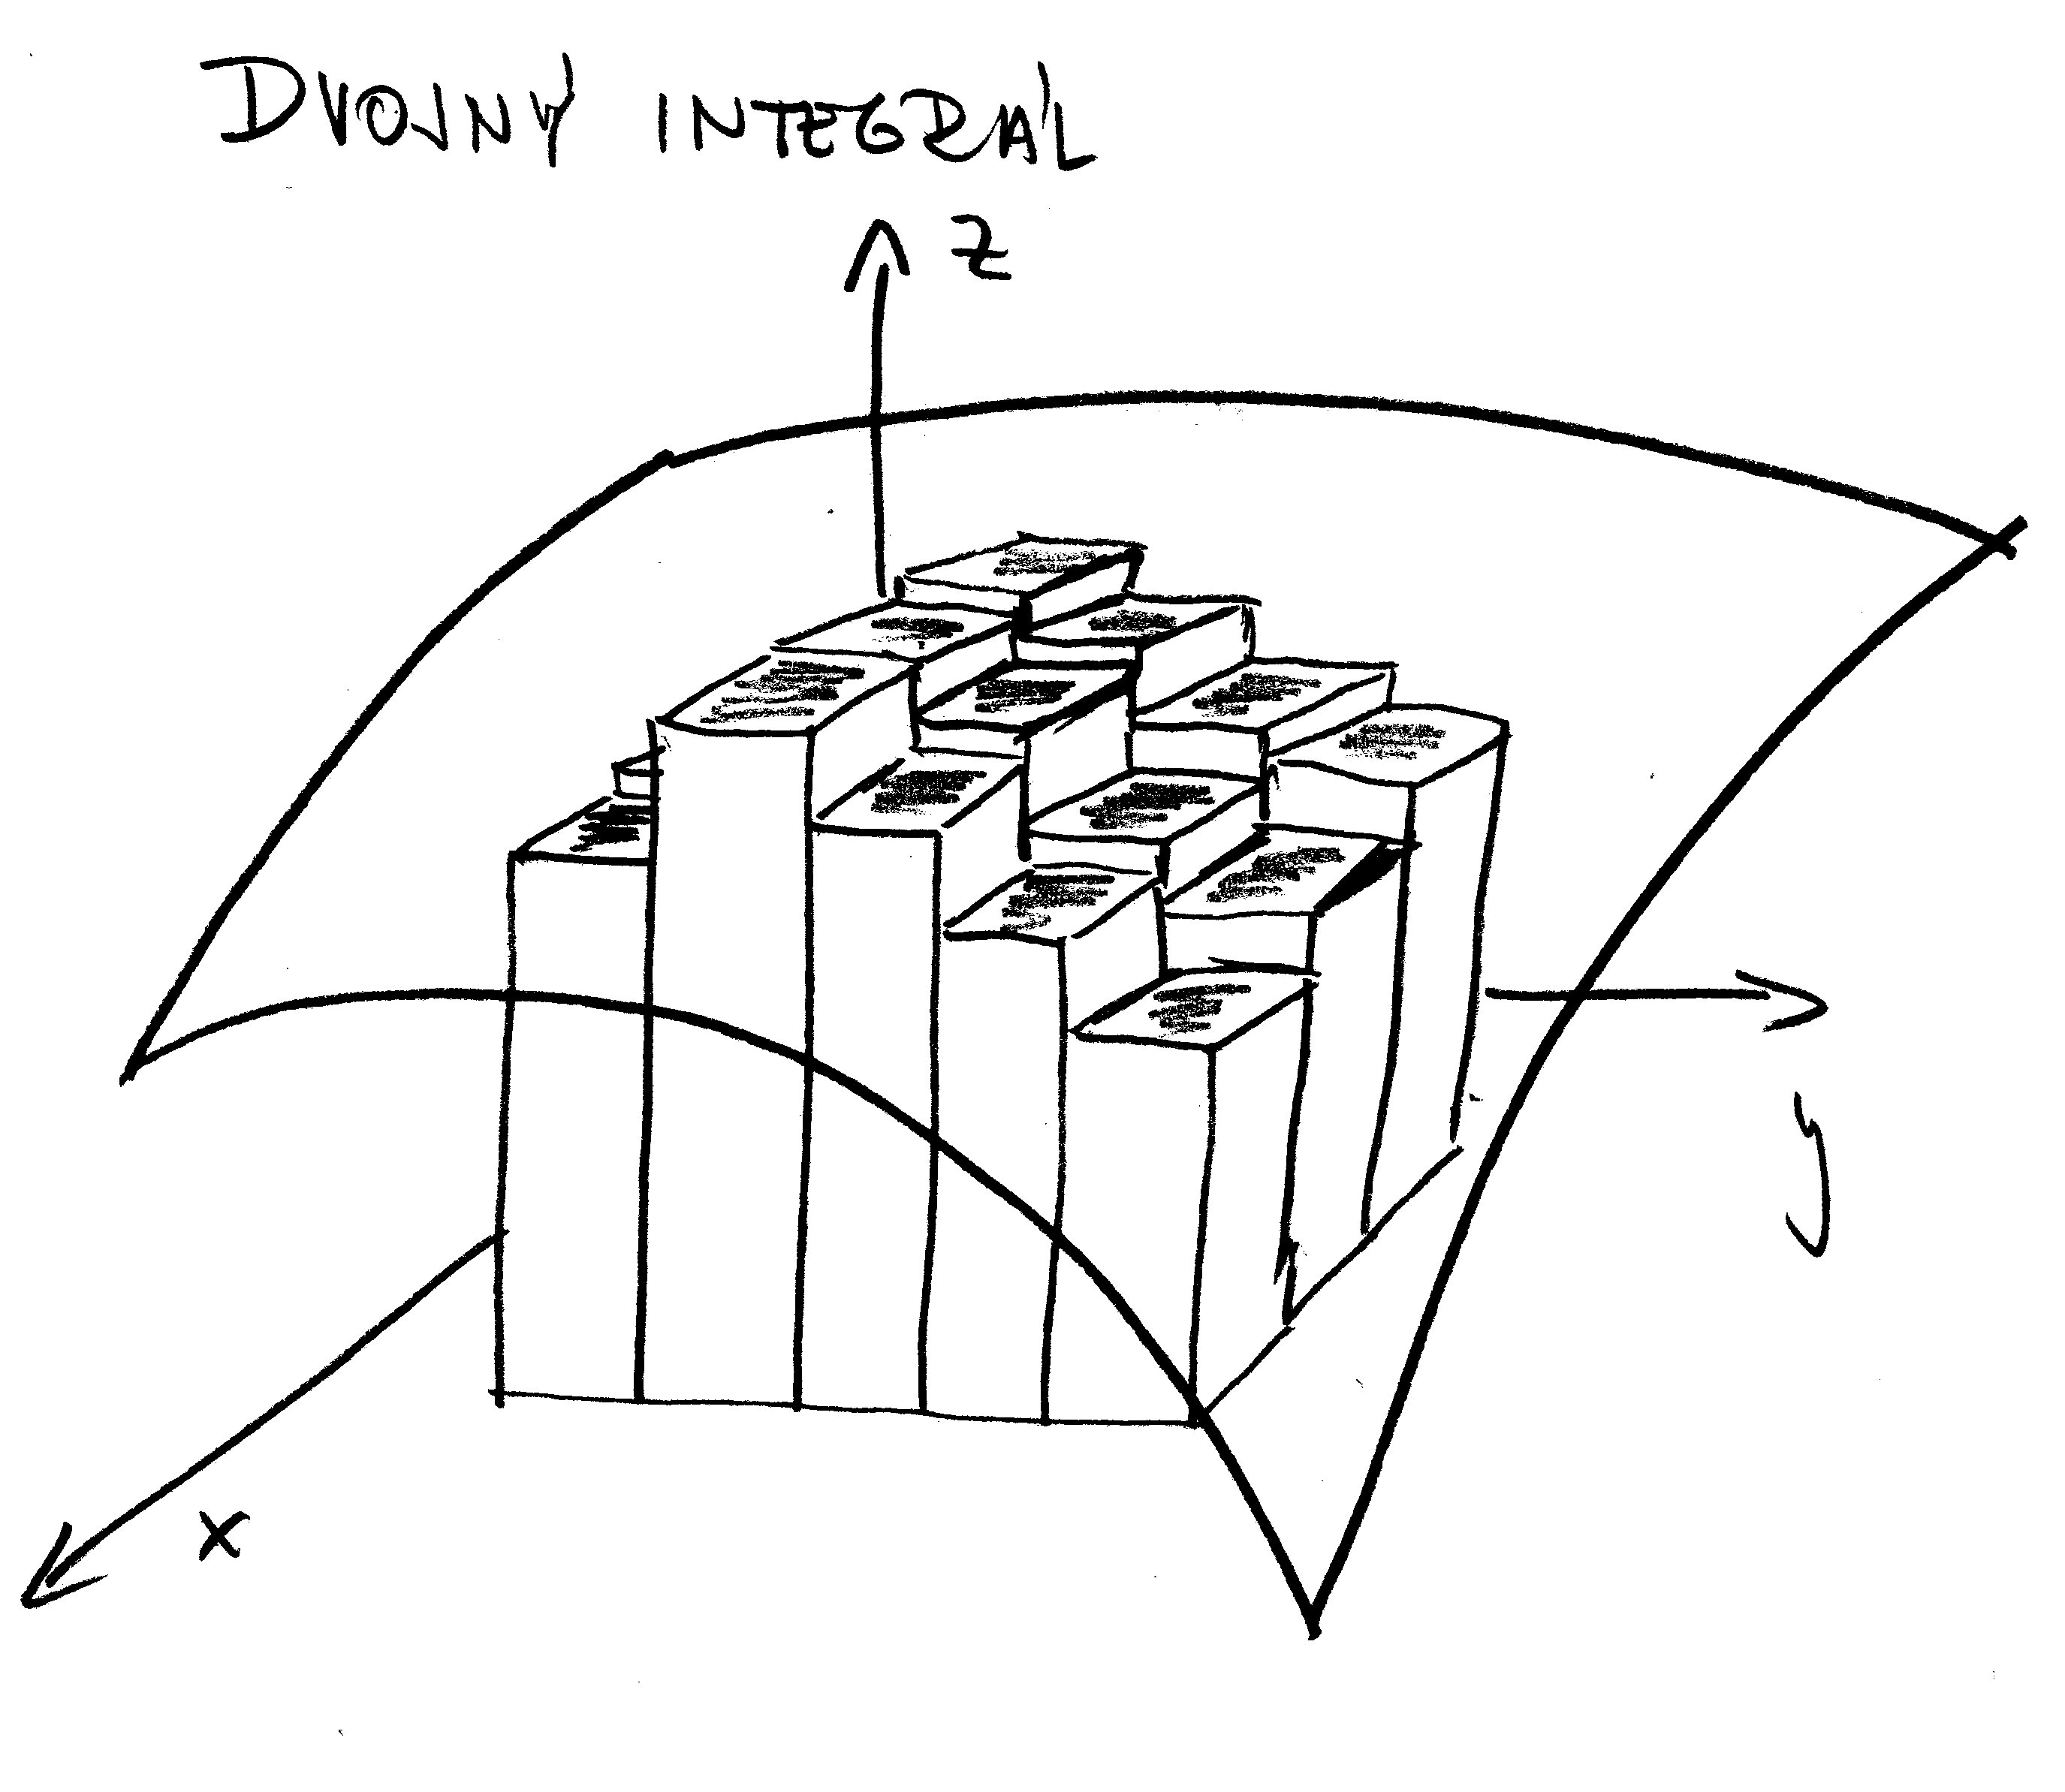 DVOJNÝ INTEGRÁL
z
y
x